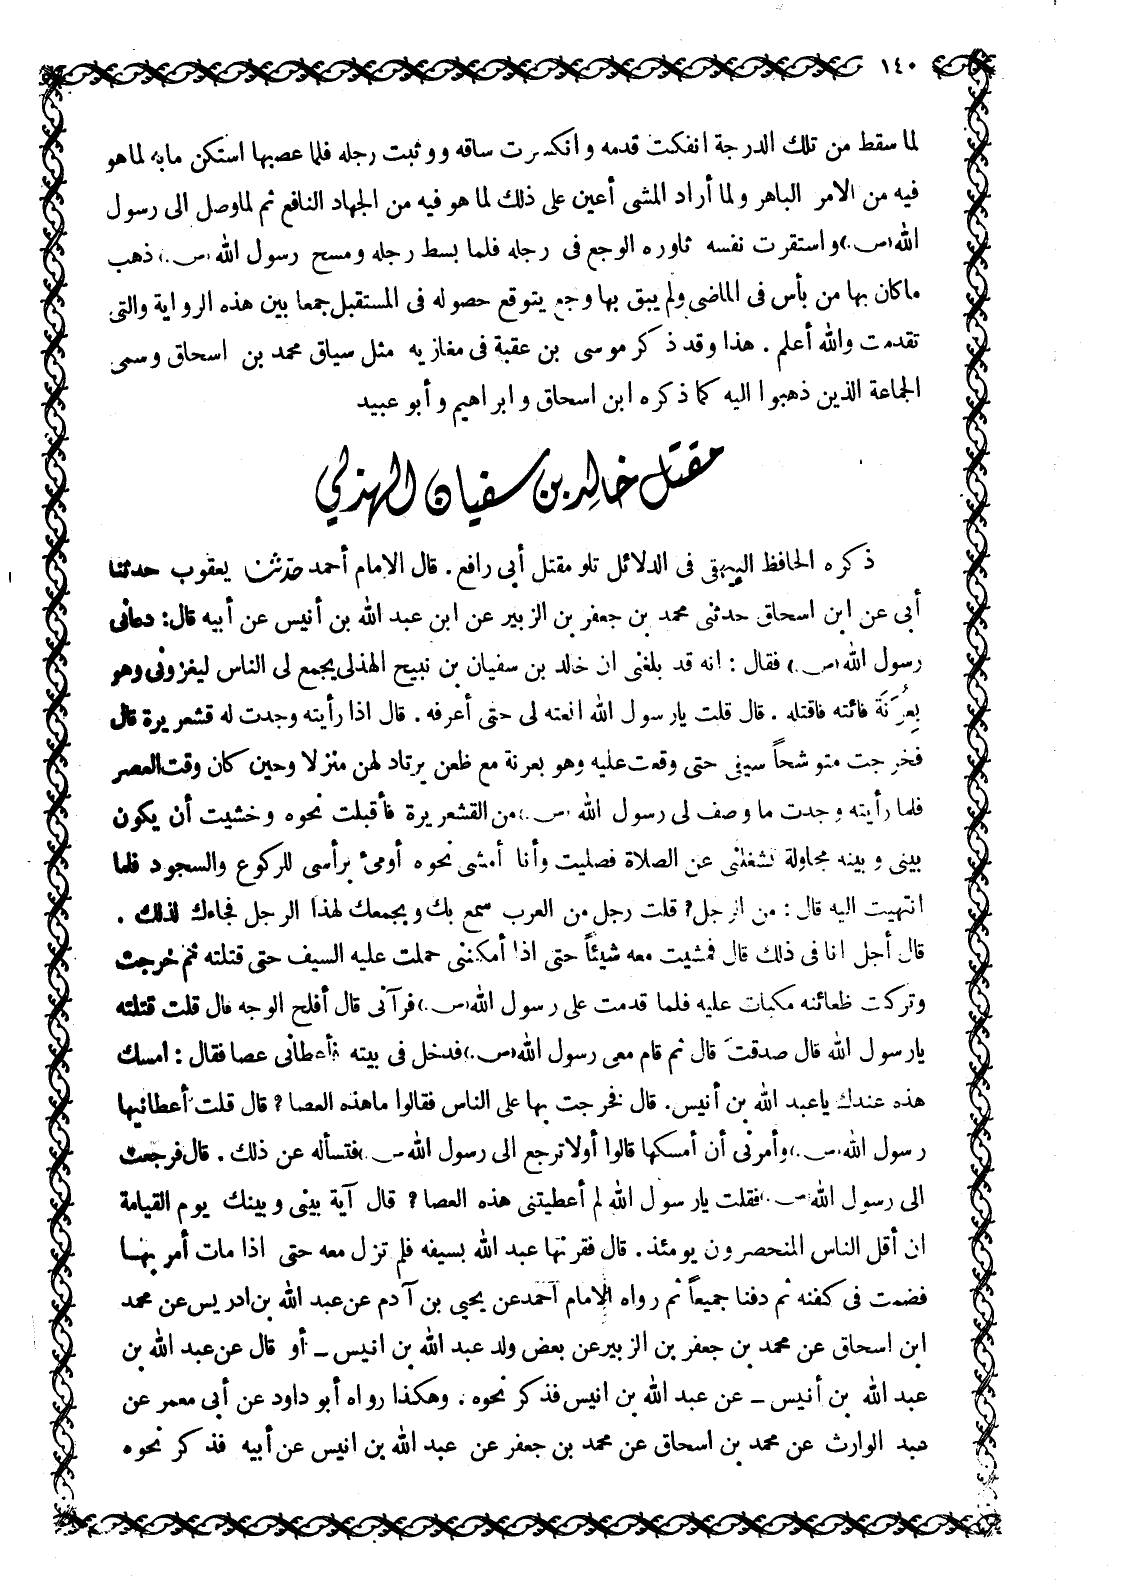 ١٤٠
لما سقط من تلك الدرجة انفكت قدمه وانكسرت ساقه ووثبت رجله فلما عصبها استكن مابه لما هو
فيه من الامر الباهر ولما أراد المشى أعين على ذلك لما هو فيه من الجهاد النافع ثم لما وصل الى رسول
الله (ص.) واستقرت نفسه ثاوره الوجع فى رجله فلما بسط رجله ومسح رسول الله (ص.) ذهب
ماكان بها من بأس فى الماضى ولم يبق بها وجع يتوقع حصوله فى المستقبل جمعا بين هذه الرواية والتى
تقدمت والله أعلم . هذا وقد ذكر موسى بن عقبة فى مغازيه مثل سياق محمد بن اسحاق وسمى
الجماعة الذين ذهبوا اليه كما ذكره ابن اسحاق وابراهيم وأبو عبيد
مقتل خالد بن سفيان الهذلي
ذكره الحافظ البيهقى فى الدلائل تلو مقتل أبى رافع . قال الامام أحمد حدثنا يعقوب حدثنا
أبى عن ابن اسحاق حدثنى محمد بن جعفر بن الزبير عن ابن عبد الله بن أنيس عن أبيه قال : دعانى
رسول الله (ص.) فقال : انه قد بلغنى ان خالد بن سفيان بن نبيح الهذلى يجمع لى الناس ليغزونى وهو
بِعُرَنَة فائته فاقتله . قال قلت يارسول الله انعته لى حتى أعرفه . قال اذا رأيته وجدت له قشعريرة قال
فخرجت متوشحاً سيفى حتى وقعت عليه وهو بعرنة مع ظعن يرتاد لهن منزلا وحين كان وقت العصر
فلما رأيته وجدت ما وصف لى رسول الله (ص.) من القشعريرة فأقبلت نحوه وخشيت أن يكون
بينى وبينه مجاولة تشغلنى عن الصلاة فصليت وأنا أمشى نحوه أومئ برأسى للركوع والسجود فلما
انتهيت اليه قال : من الرجل ؟ قلت رجل من العرب سمع بك وبجمعك لهذا الرجل فجاءك لذلك .
قال أجل انا فى ذلك قال فمشيت معه شيئاً حتى اذا أمكننى حملت عليه السيف حتى قتلته ثم خرجت
وتركت ظعائنه مكبات عليه فلما قدمت على رسول الله (ص.) فرآنى قال أفلح الوجه قال قلت قتلته
يارسول الله قال صدقت قال ثم قام معى رسول الله (ص.) فدخل فى بيته فأعطانى عصا فقال : امسك
هذه عندك ياعبد الله بن أنيس . قال فخرجت بها على الناس فقالوا ماهذه العصا ؟ قال قلت أعطانيها
رسول الله (ص.) وأمرنى أن أمسكها قالوا أولا ترجع الى رسول الله (ص.) فتسأله عن ذلك . قال فرجعت
الى رسول الله (ص.) فقلت يارسول الله لم أعطيتنى هذه العصا ؟ قال آية بينى وبينك يوم القيامة
ان أقل الناس المتحصرون يومئذ . قال فقرنها عبد الله بسيفه فلم تزل معه حتى اذا مات أمر بها
فضمت فى كفنه ثم دفنا جميعاً ثم رواه الامام أحمد عن يحيى بن آدم عن عبد الله بن ادريس عن محمد
ابن اسحاق عن محمد بن جعفر بن الزبير عن بعض ولد عبد الله بن انيس - أو قال عن عبد الله بن
عبد الله بن أنيس - عن عبد الله بن انيس فذكر نحوه . وهكذا رواه أبو داود عن أبى معمر عن
عبد الوارث عن محمد بن اسحاق عن محمد بن جعفر عن عبد الله بن انيس عن أبيه فذكر نحوه